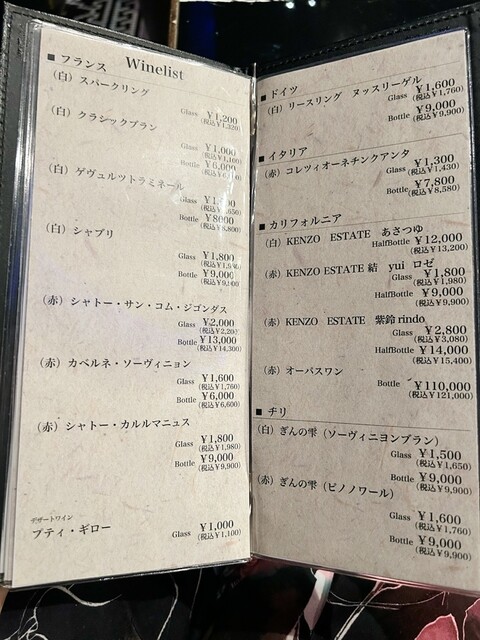 ■ フランス Winelist
(白) スパークリング
Glass ¥1,200
(税込¥1,320)
(白) クラシックブラン
Glass ¥1,000
(税込¥1,100)
Bottle ¥6,000
(白) ゲヴュルツトラミネール
Glass
Bottle ¥8000
(税込¥8,800)
(白) シャブリ
Glass ¥1,800
Bottle ¥9,000
(税込¥9,900)
(赤) シャトー・サン・コム・ジゴンダス
Glass ¥2,000
(税込¥2,200)
Bottle ¥13,000
(税込¥14,300)
(赤) カベルネ・ソーヴィニョン
Glass ¥1,600
(税込¥1,760)
Bottle ¥6,000
(税込¥6,600)
(赤) シャトー・カルルマニュス
Glass ¥1,800
(税込¥1,980)
Bottle ¥9,000
(税込¥9,900)
デザートワイン
プティ・ギロー
Glass ¥1,000
(税込¥1,100)
■ ドイツ
(白) リースリング ヌッスリーゲル
Glass ¥1,600
(税込¥1,760)
Bottle ¥9,000
(税込¥9,900)
■ イタリア
(赤) コレツィオーネチンクアンタ
Glass ¥1,300
(税込¥1,430)
Bottle ¥7,800
(税込¥8,580)
■ カリフォルニア
(白) KENZO ESTATE あさつゆ
HalfBottle ¥12,000
(税込¥13,200)
(赤) KENZO ESTATE 結 yui ロゼ
Glass ¥1,800
(税込¥1,980)
HalfBottle ¥9,000
(税込¥9,900)
(赤) KENZO ESTATE 紫鈴 rindo
Glass ¥2,800
(税込¥3,080)
HalfBottle ¥14,000
(税込¥15,400)
(赤) オーパスワン
Bottle ¥110,000
(税込¥121,000)
■ チリ
(白) ぎんの雫 (ソーヴィニヨンブラン)
Glass ¥1,500
(税込¥1,650)
Bottle ¥9,000
(税込¥9,900)
(赤) ぎんの雫 (ピノノワール)
Glass ¥1,600
(税込¥1,760)
Bottle ¥9,000
(税込¥9,900)